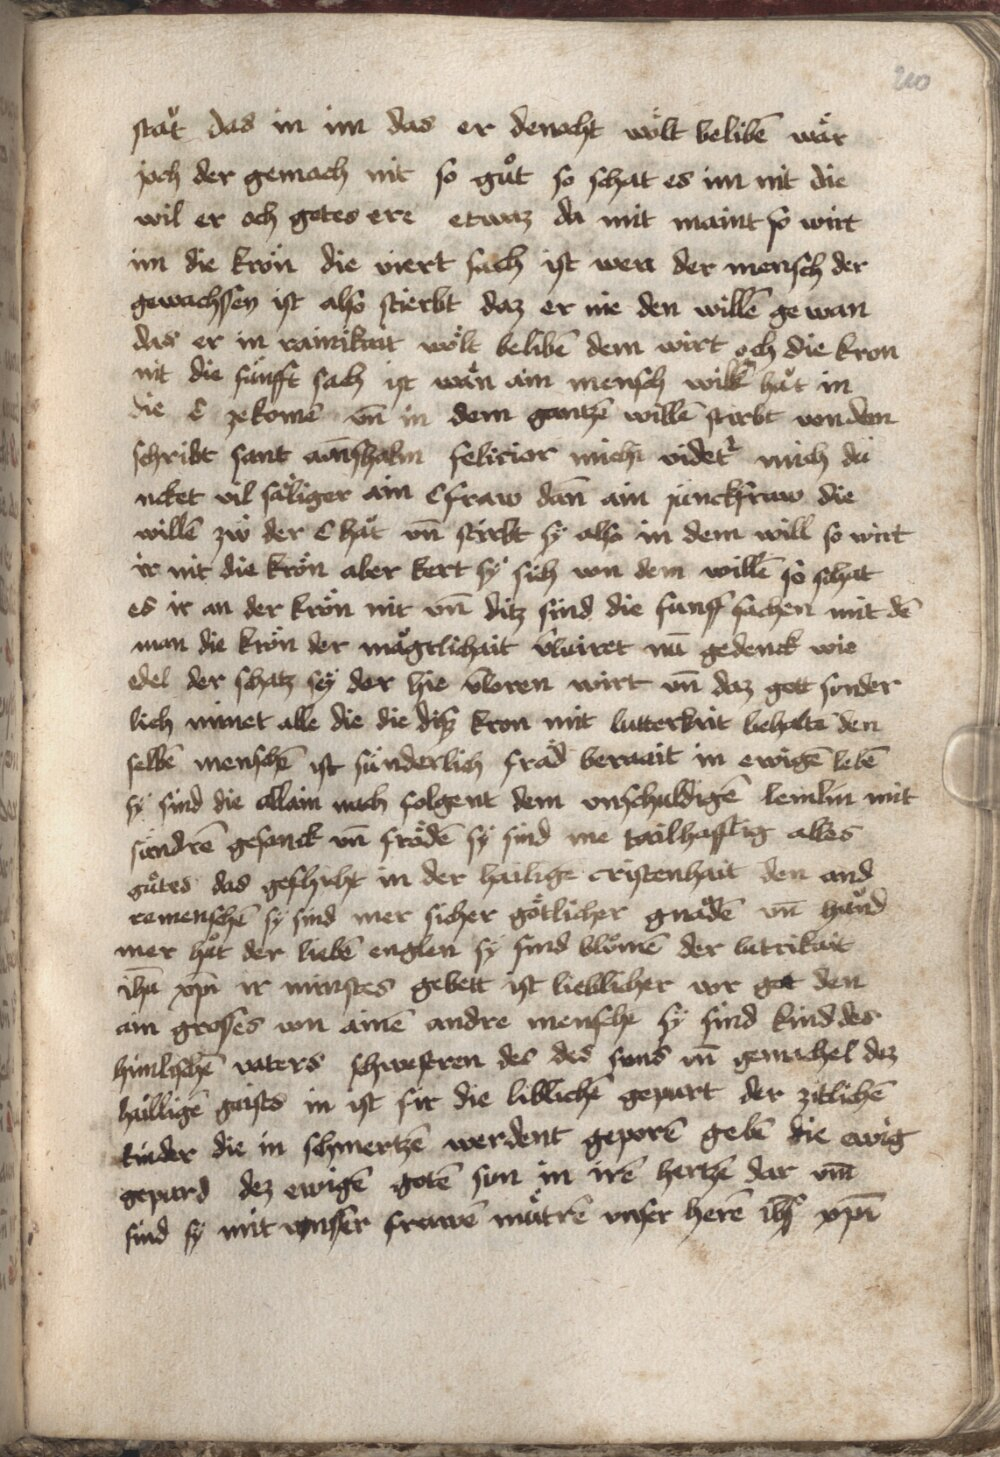 210
staͤt das in im das er denocht woͤlt belibē waͤr
joch der gemach nit so guͦt so schat es im nit die
wil er och gotes ere etwaz da mit maint so wirt
im die kroͤn die viert sach ist wen der mensch der
gewachssen ist also stierbt daz er nie den willē gewan
das er in rainikait woͤlt belibē dem wirt och die kron
nit die fúnfft sach ist waͤn ain mensch willē haͤt in
die E zekomē vn̄ in dem gantzē willē stirbt von dem
schribt sant anshalm felicior michi videtr mich du
ncket vil saͤliger ain Efraw dan̄ ain junckfraw die
willē zuͦ der E haͤt vn̄ stirbt sy also in dem will so wirt
ir nit die kroͤn aber kert sy sich von dem willē so schat
es ir an der kroͤn nit vn̄ ditz sind die funff sachen mit dē
man die kroͤn der maͤgtlichait v̄lúiret nū gedenck wie
edel der schatz sey der hie v̄loren wirt vn̄ daz gott sonder
lich minet alle die die ditz kron mit lutterkait behaltē den
selbē menschē ist sunderlich fraͤd beraait in ewigē lebē
sy sind die allain nach folgent dem vnschuldigē lemlin mit
sundrē gesanck vn̄ froͤdē sy sind me tailhafftig alles
guͦtes das geschicht in der hailige cristenhait den and
remenschē sy sind mer sicher goͤtlicher gnaͤdē vn̄ haͤnd
mer huͦt der liebē englen sy sind bluͦmē der lutrikait
ihū xpī ir minstes gebett ist lieblicher vor got den
ain grosses von ainē andre mensche sy sind kind des
himlischē vaters schwestren des des suns vn̄ gemachel dez
hailligē gaists in ist fir die liblichē gepurt der zitlichē
kinder die in schmertzē werdent geporē gebē die ewig
gepurd dez ewigē gotē sun in irē hertzē dar vm̄
sind sy mit vnsser frawē muͤtrē vnser herē ihs xpī